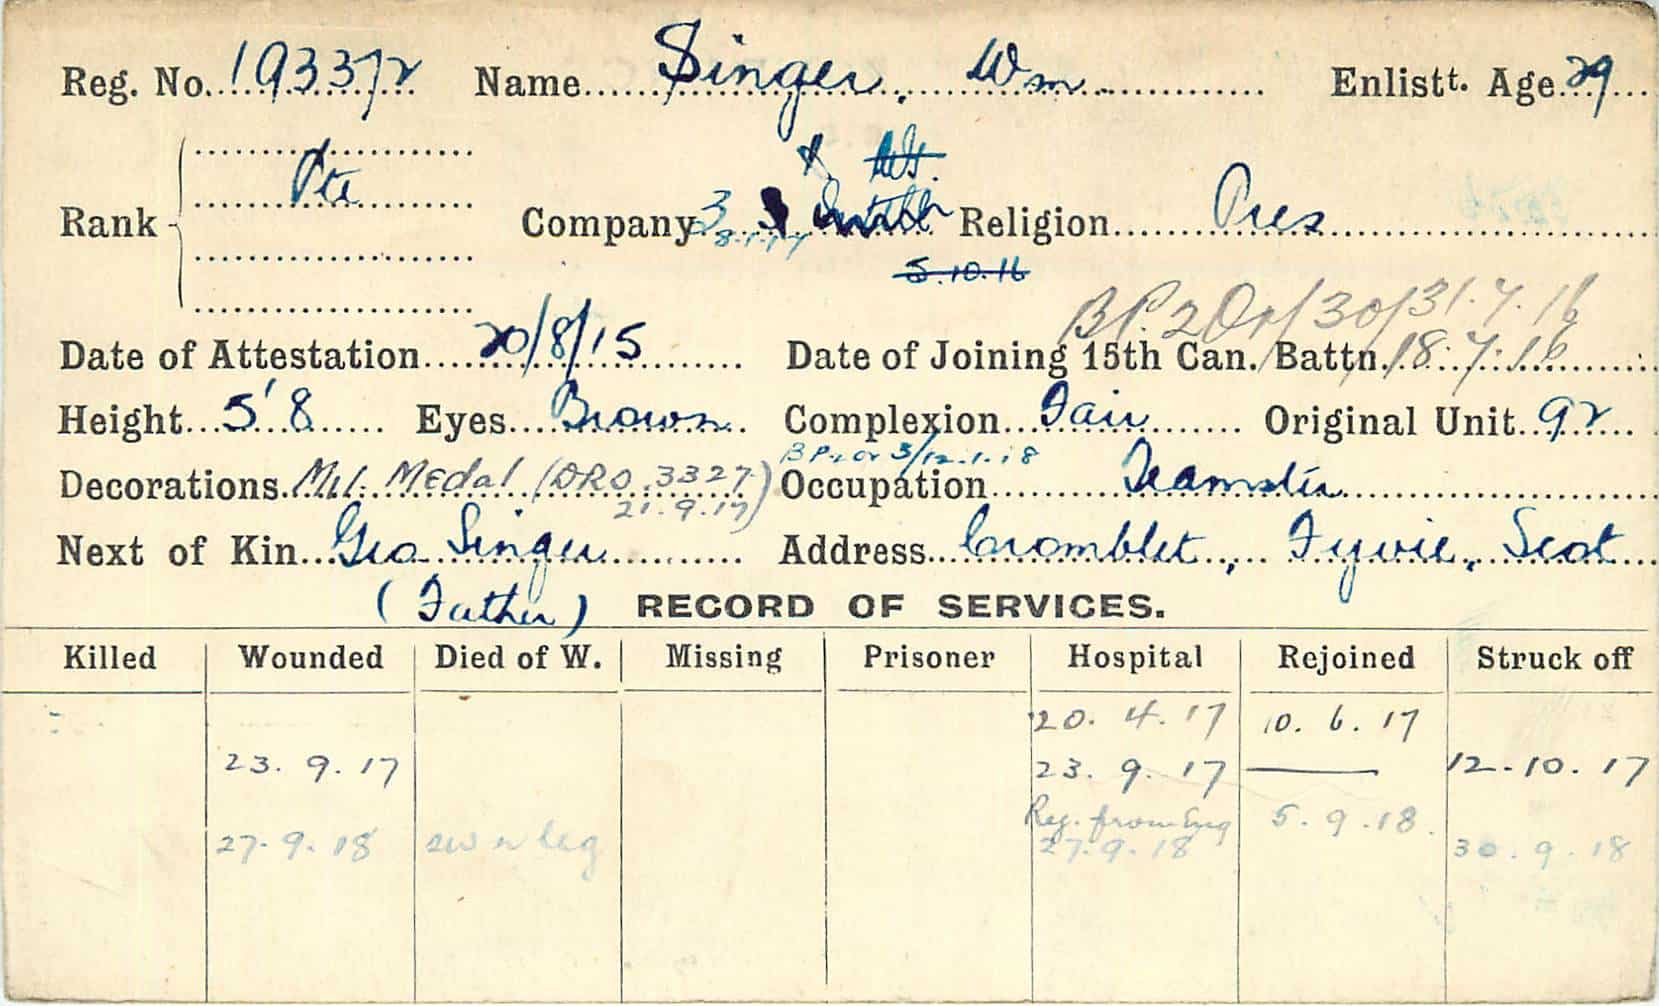 Reg. No. 193372 Name Singer, Wm Enlistt. Age 29
Rank Pte Company 3 8.1.17 Religion Pres
5.10.16
B.P. 2 Or/30/31.7.16
Date of Attestation 20/8/15 Date of Joining 15th Can. Battn. 18.7.16
Height 5'8 Eyes Brown Complexion Fair Original Unit 92
Decorations Mil. Medal (DRO 3327 21.9.17) Occupation Teamster
Next of Kin Geo Singer Address Cromblet, Fyvie, Scot
(Father) RECORD OF SERVICES.
Killed Wounded Died of W. Missing Prisoner Hospital Rejoined Struck off
20. 4. 17 10. 6. 17
23. 9. 17 23. 9. 17 — 12-10. 17
Reg. from Eng 5. 9. 18.
27. 9. 18 leg 27. 9. 18 30. 9. 18